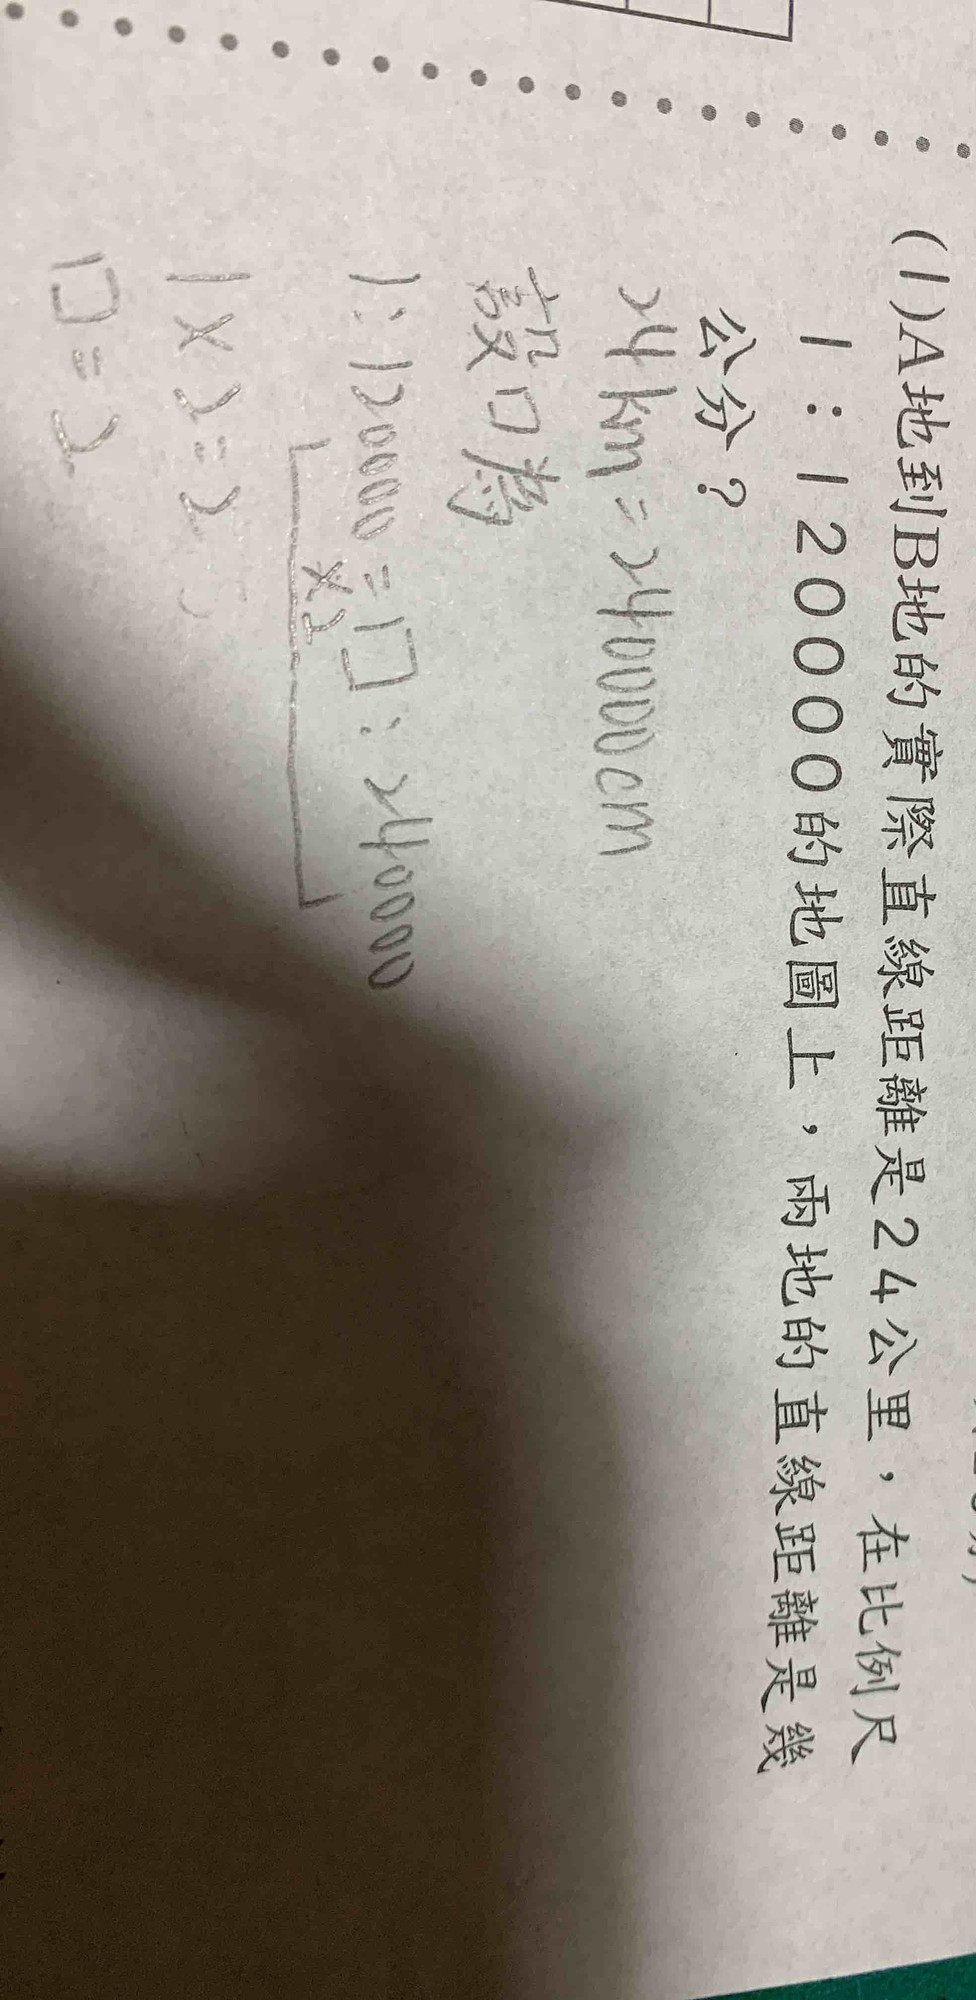 (1)A地到B地的實際直線距離是24公里，在比例尺
1：120000的地圖上，兩地的直線距離是幾
公分？
24km=240000cm
設口為
1:120000=口:240000
×2
1×2=2
口=2